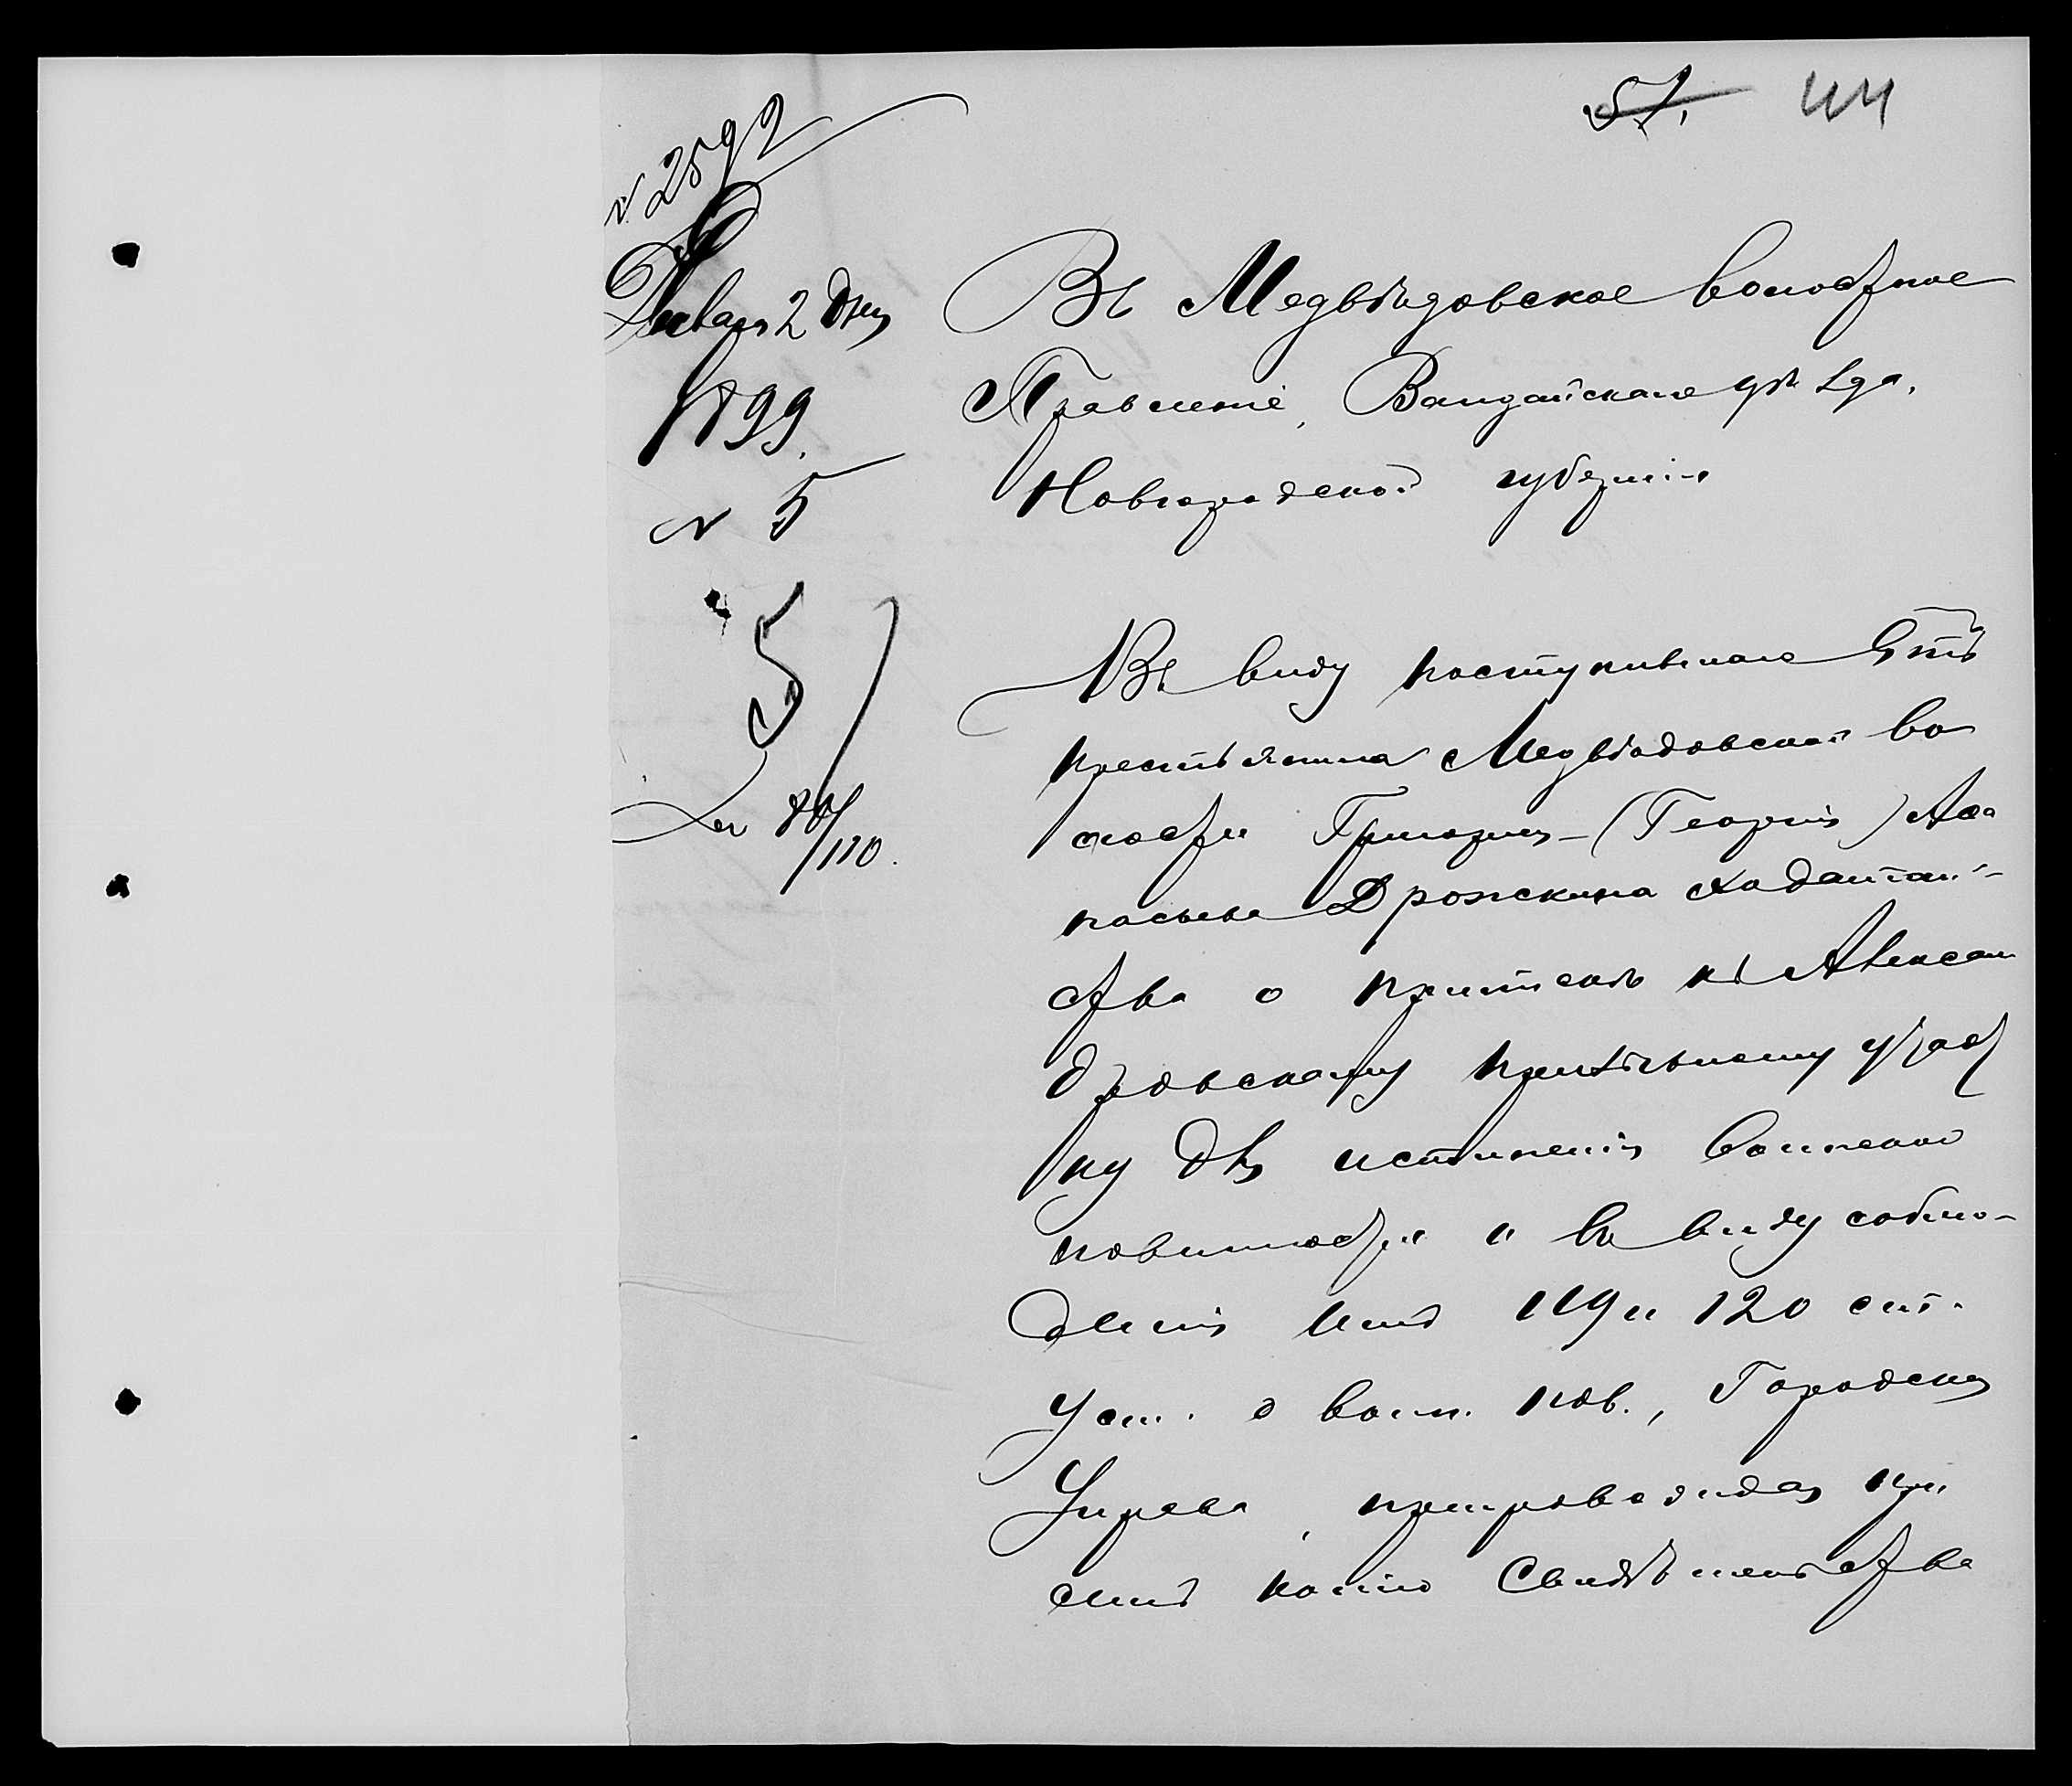 57. 44
№ 2592
Января 2 дня
1899
№ 5
5
110.
Въ Медвѣдовское волостное
Правленіе, Валдайскаго уѣзда,
Новгородской губерніи
Въ виду поступившаго отъ
крестьянина Медвѣдовской во
лости Григорія (Георгія) Афа
насьева Дрожскина ходатай-
ства о припискѣ къ Алексан
дровскому призывному участ
ку для исполненія воинской
повинности и въ виду соблю-
денія имъ 119 и 120 ст.
Уст. о воин. пов., Городская
Управа, препровождая при
семъ копію Свидѣтельства